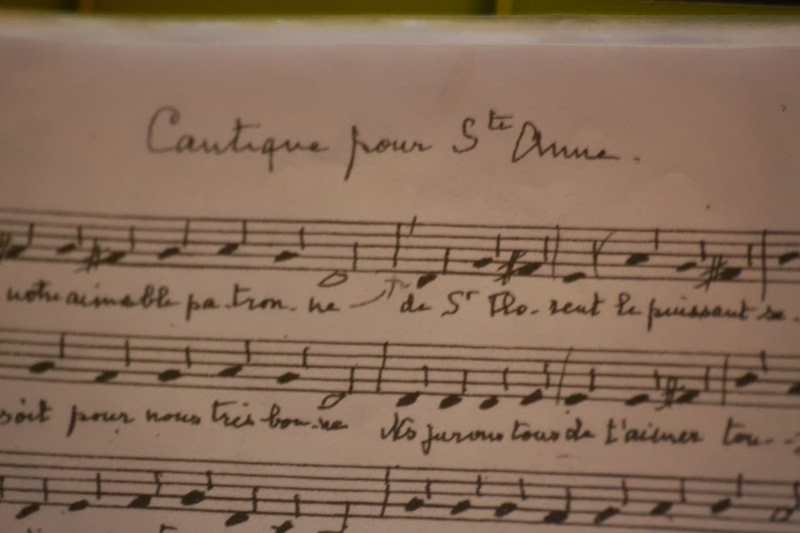 Cantique pour Ste Anne.
notre aimable pa-tron-ne de St Flo-rent le puissant se-
soit pour nous très bon-ne Ns jurons tous de t'aimer tou-